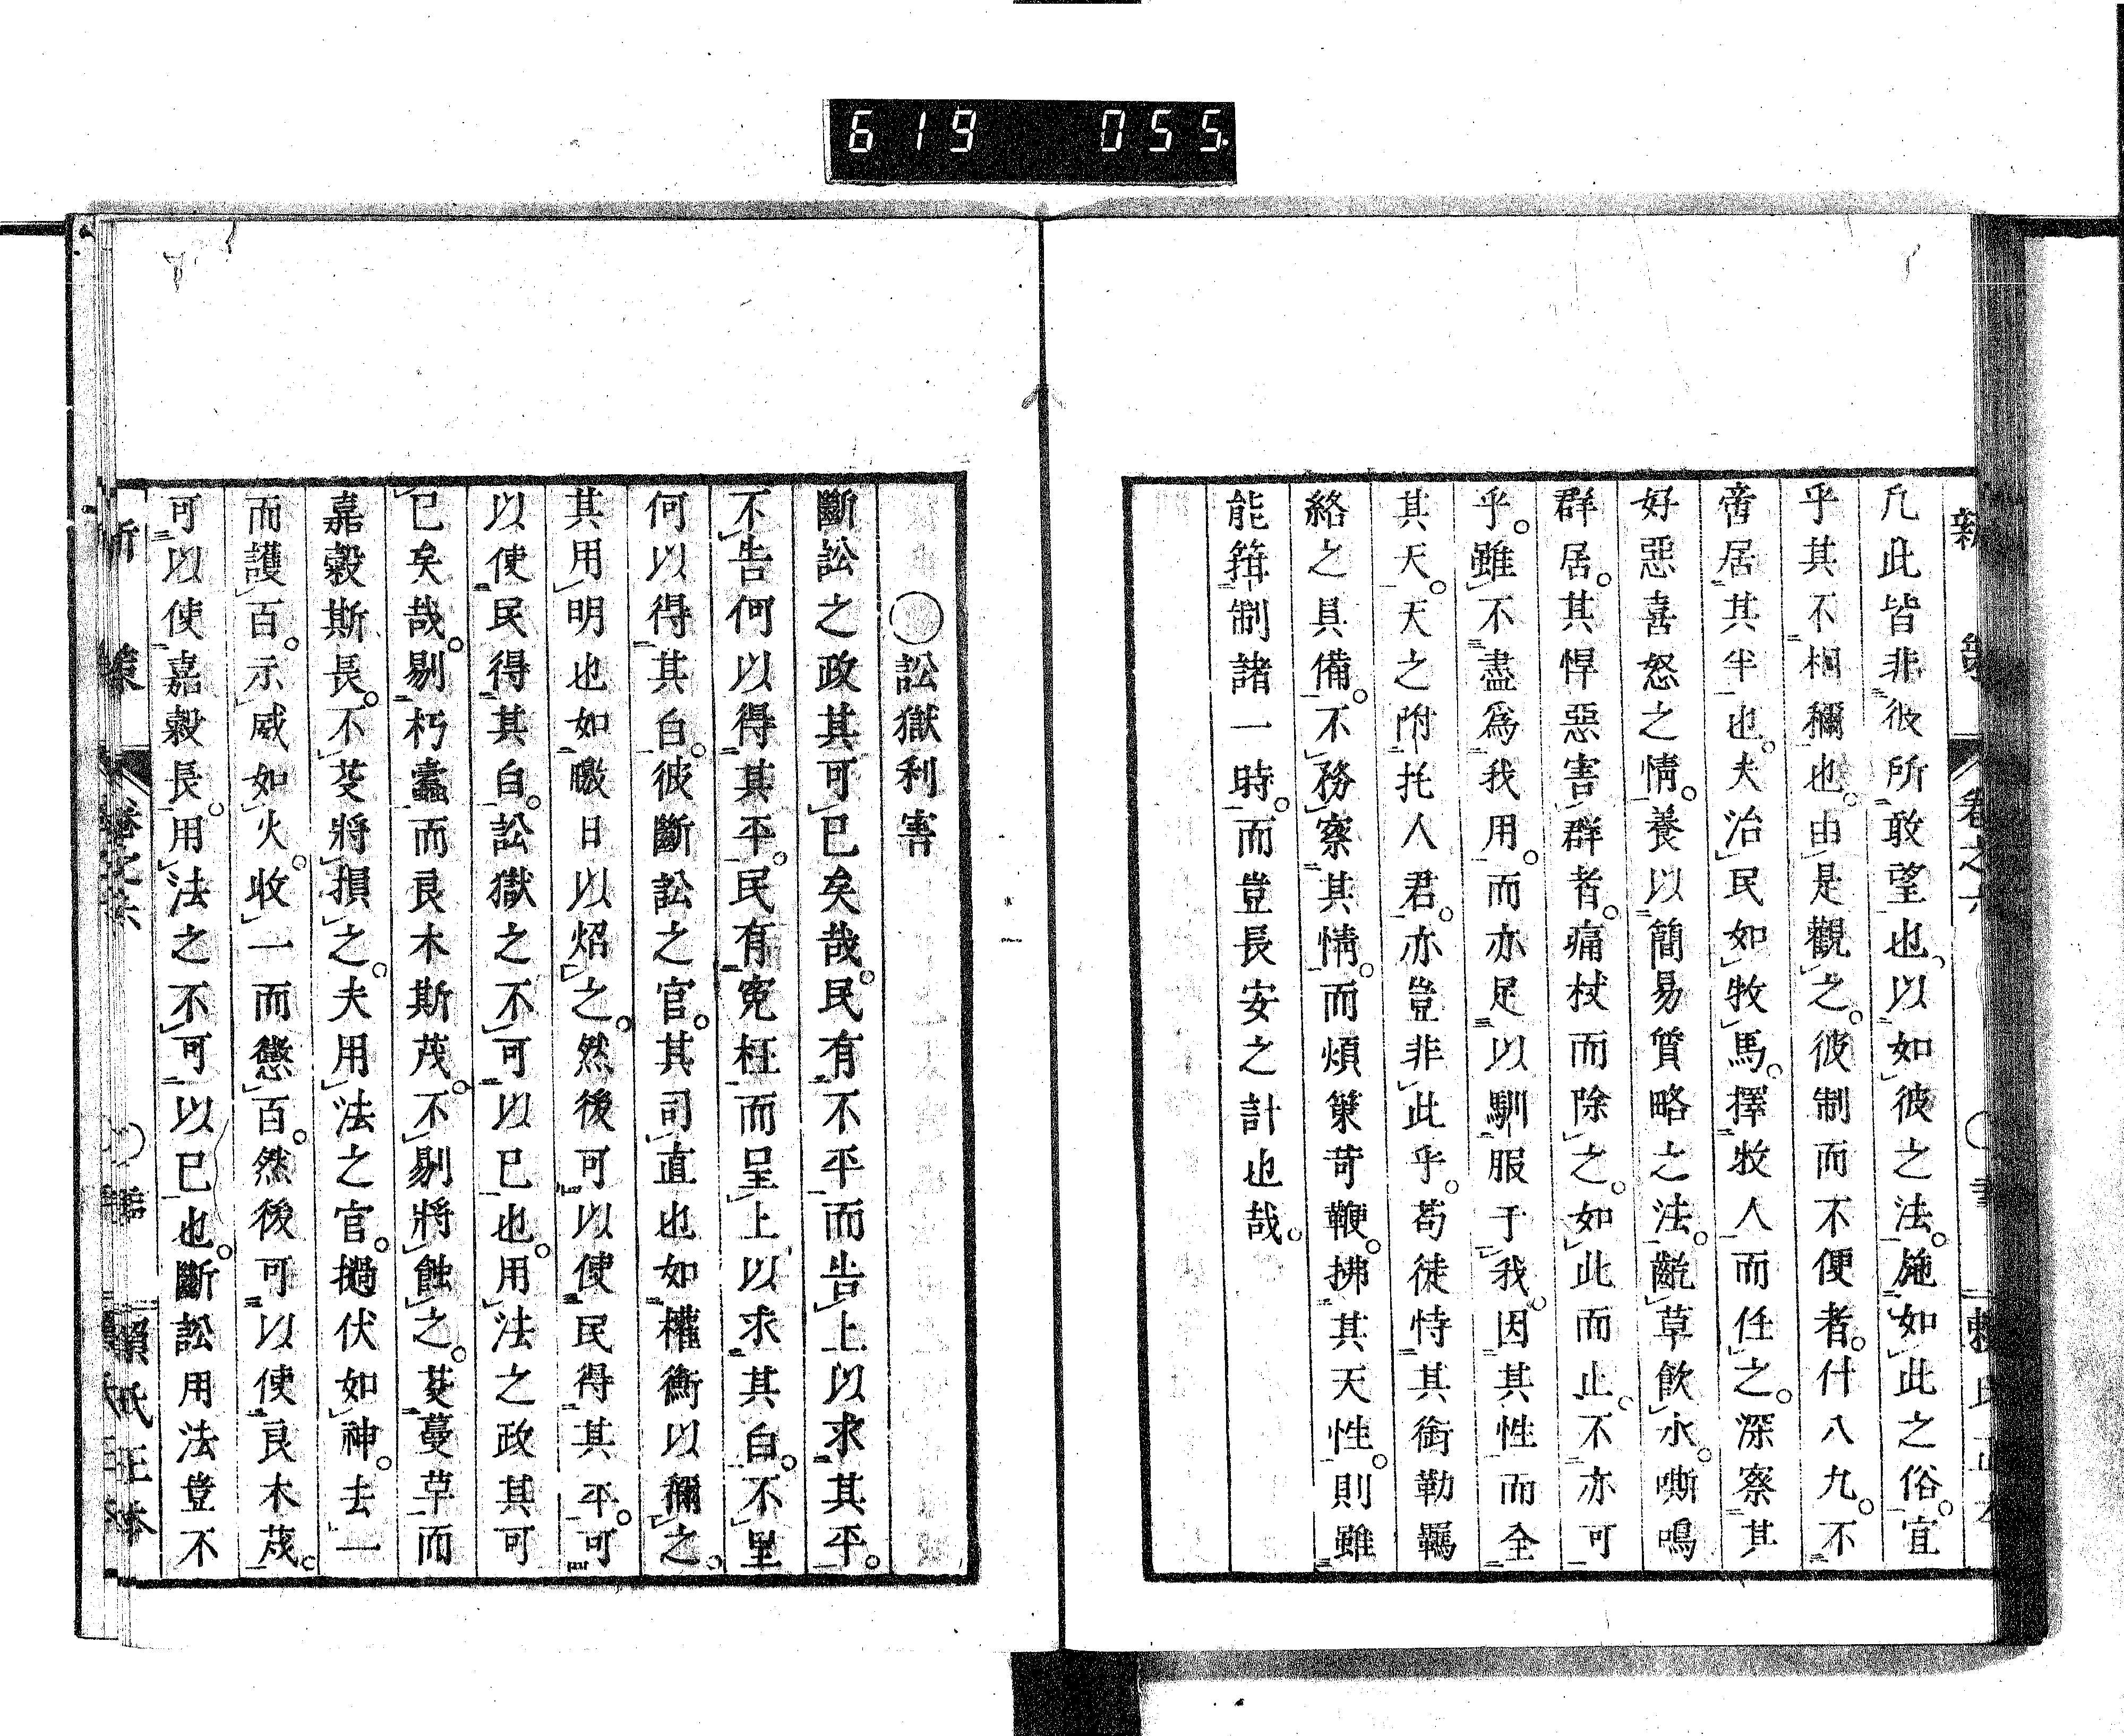 619 055
新策 卷之六
凡此皆非彼所敢望也、以如彼之法。施如此之俗。宜
乎其不相稱也。由是觀之。彼制而不便者。什八九。不
啻居其半也。夫治民如牧馬。擇牧人而任之。深察其
好惡喜怒之情。養以簡易質略之法。齕草飲水。嘶鳴
群居。其悍惡害群者。痛杖而除之。如此而止。不亦可
乎。雖不盡爲我用。而亦足以馴服于我。因其性而全
其天。天之附托人君。亦豈非此乎。苟徒恃其銜勒羈
絡之具備。不務察其情。而煩箠苛鞭。拂其天性。則雖
能箝制諸一時。而豈長安之計也哉。
○訟獄利害
斷訟之政其可已矣哉。民有不平而告上以求其平。
不告何以得其平。民有寃枉而呈上以求其白。不呈
何以得其白。彼斷訟之官。其司直也如權衡以稱之。
其用明也如曒日以炤之。然後可以使民得其平。可
以使民得其白。訟獄之不可以已也。用法之政其可
已矣哉。剔朽蠹而良木斯茂。不剔將蝕之。芟蔓草而
嘉穀斯長。不芟將損之。夫用法之官。擿伏如神。去一
而護百。示威如火。收一而懲百。然後可以使良木茂。
可以使嘉穀長。用法之不可以已也。斷訟用法豈不
新策 卷之六 賴氏正本